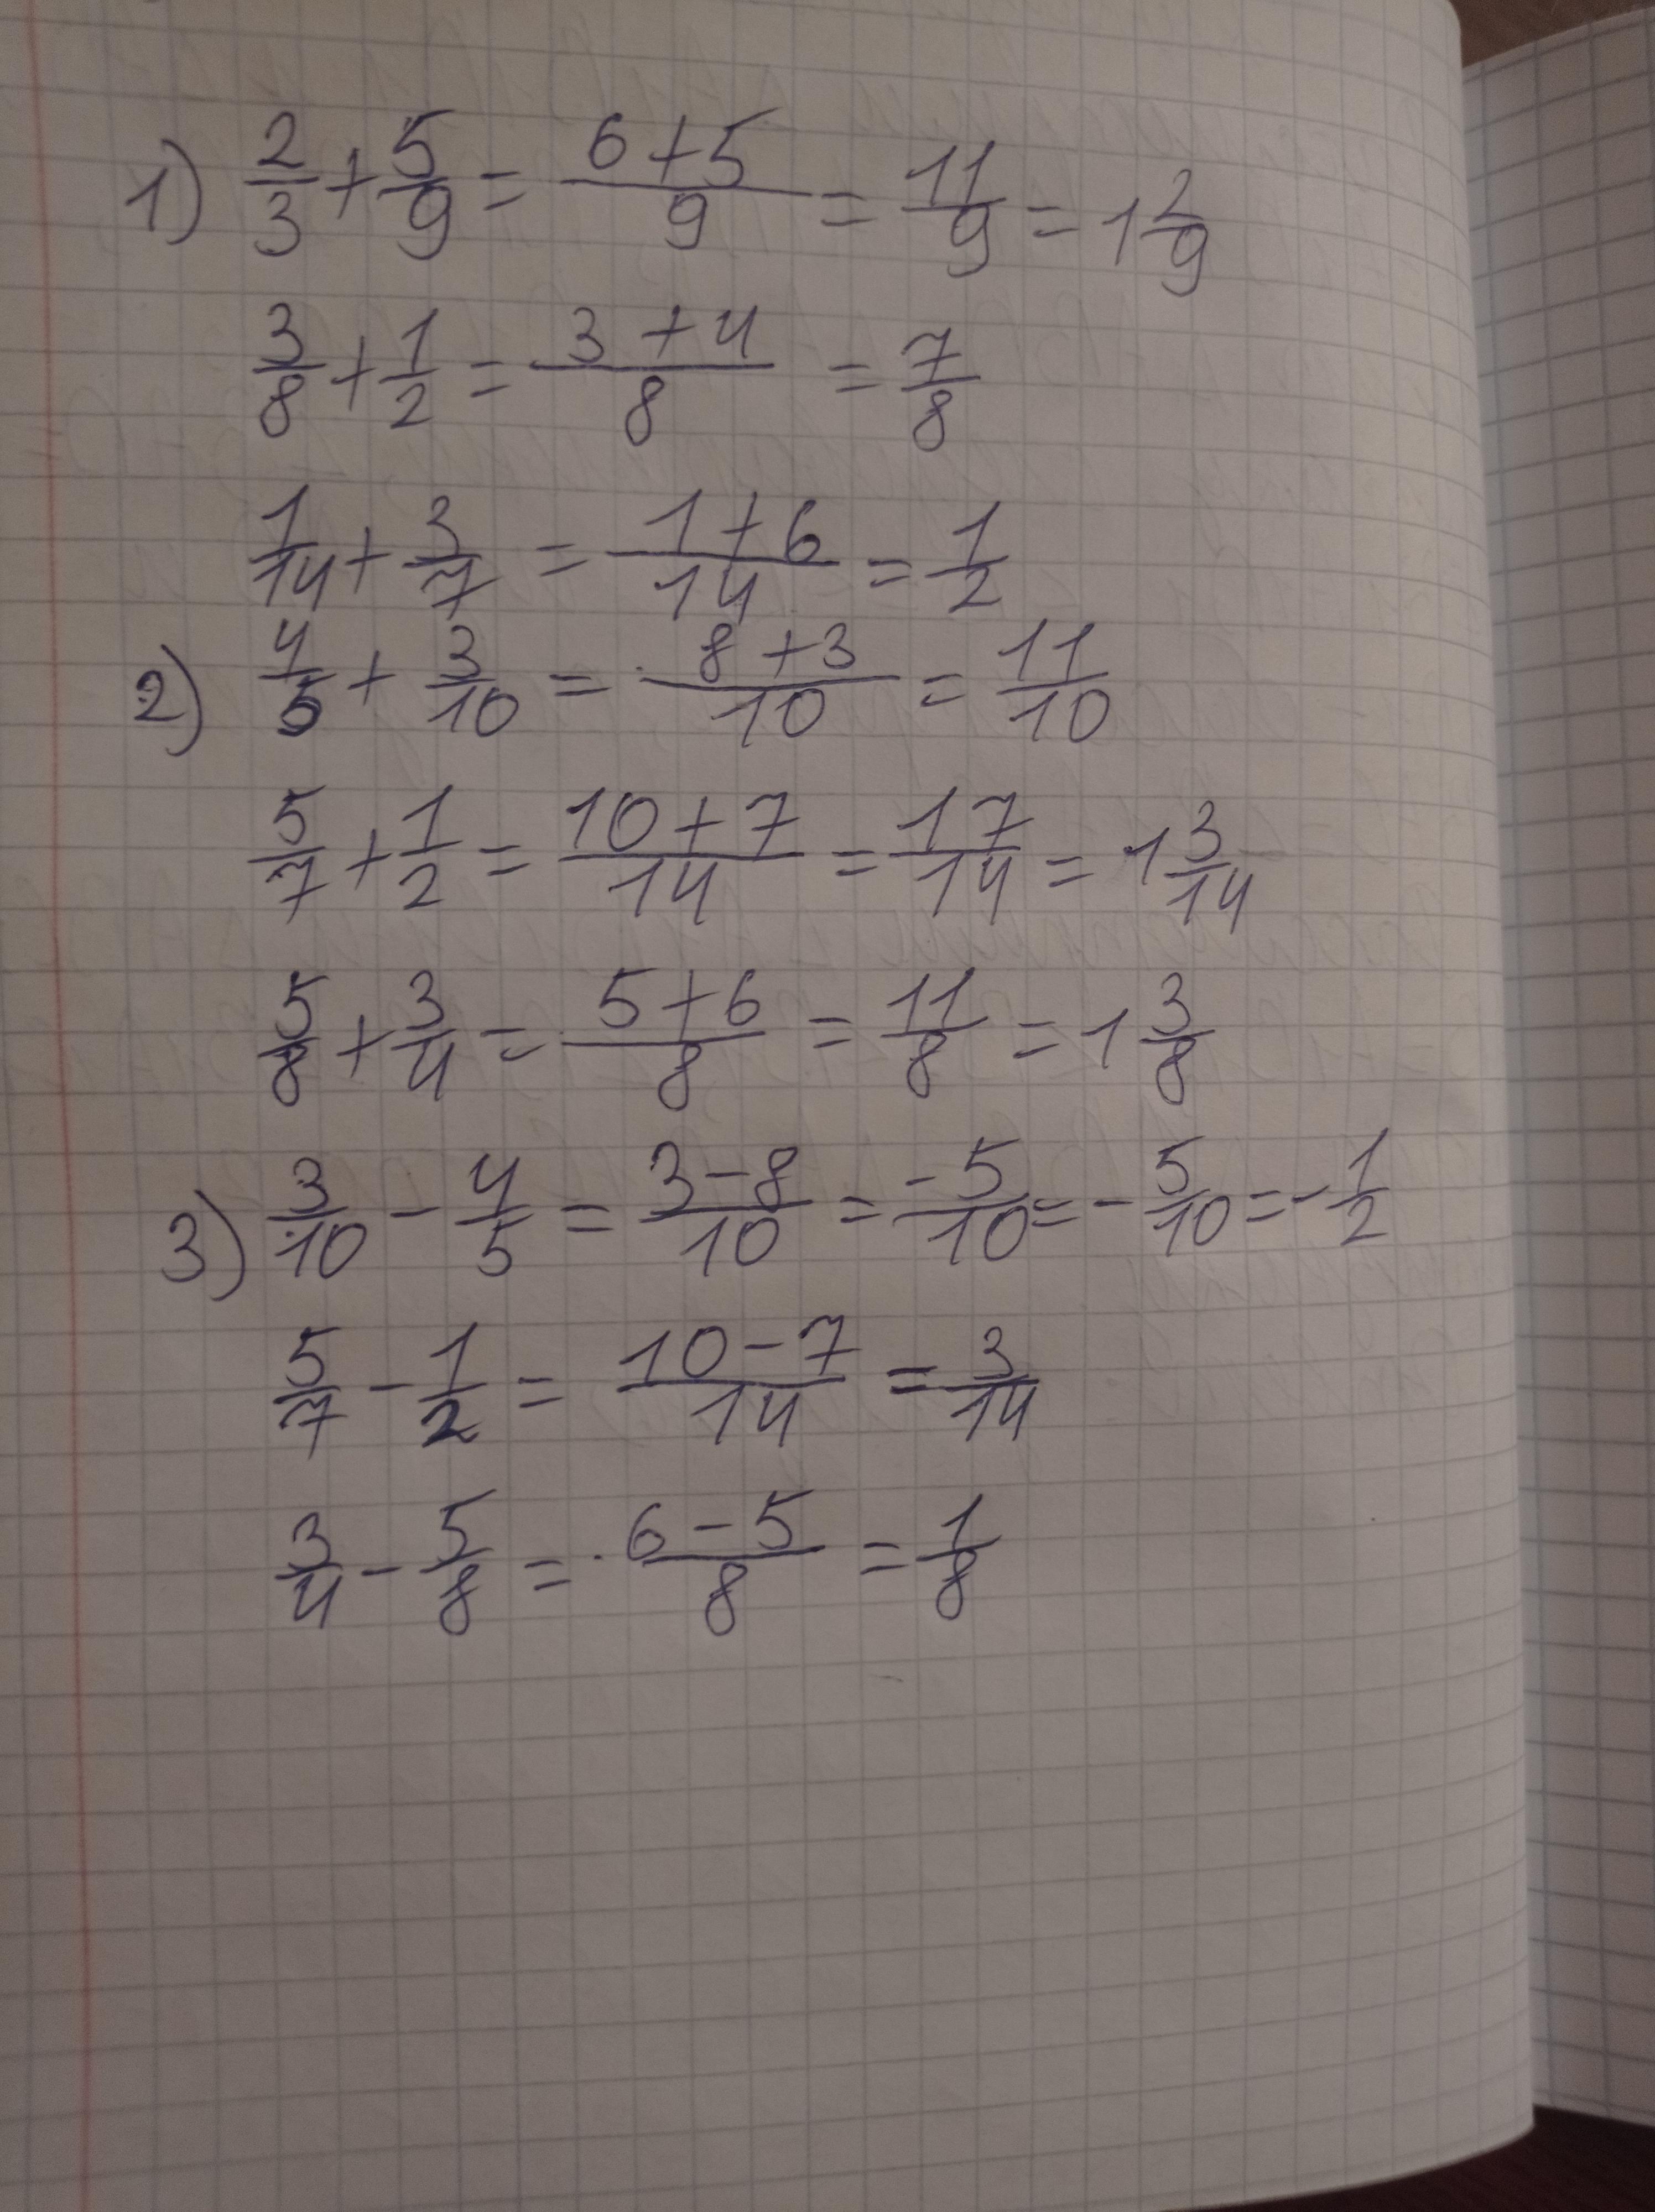 1) 2/3 + 5/9 = (6+5)/9 = 11/9 = 1 2/9
3/8 + 1/2 = (3+4)/8 = 7/8
1/14 + 3/7 = (1+6)/14 = 1/2
2) 4/5 + 3/10 = (8+3)/10 = 11/10
5/7 + 1/2 = (10+7)/14 = 17/14 = 1 3/14
5/8 + 3/4 = (5+6)/8 = 11/8 = 1 3/8
3) 3/10 - 4/5 = (3-8)/10 = -5/10 = - 5/10 = - 1/2
5/7 - 1/2 = (10-7)/14 = 3/14
3/4 - 5/8 = (6-5)/8 = 1/8